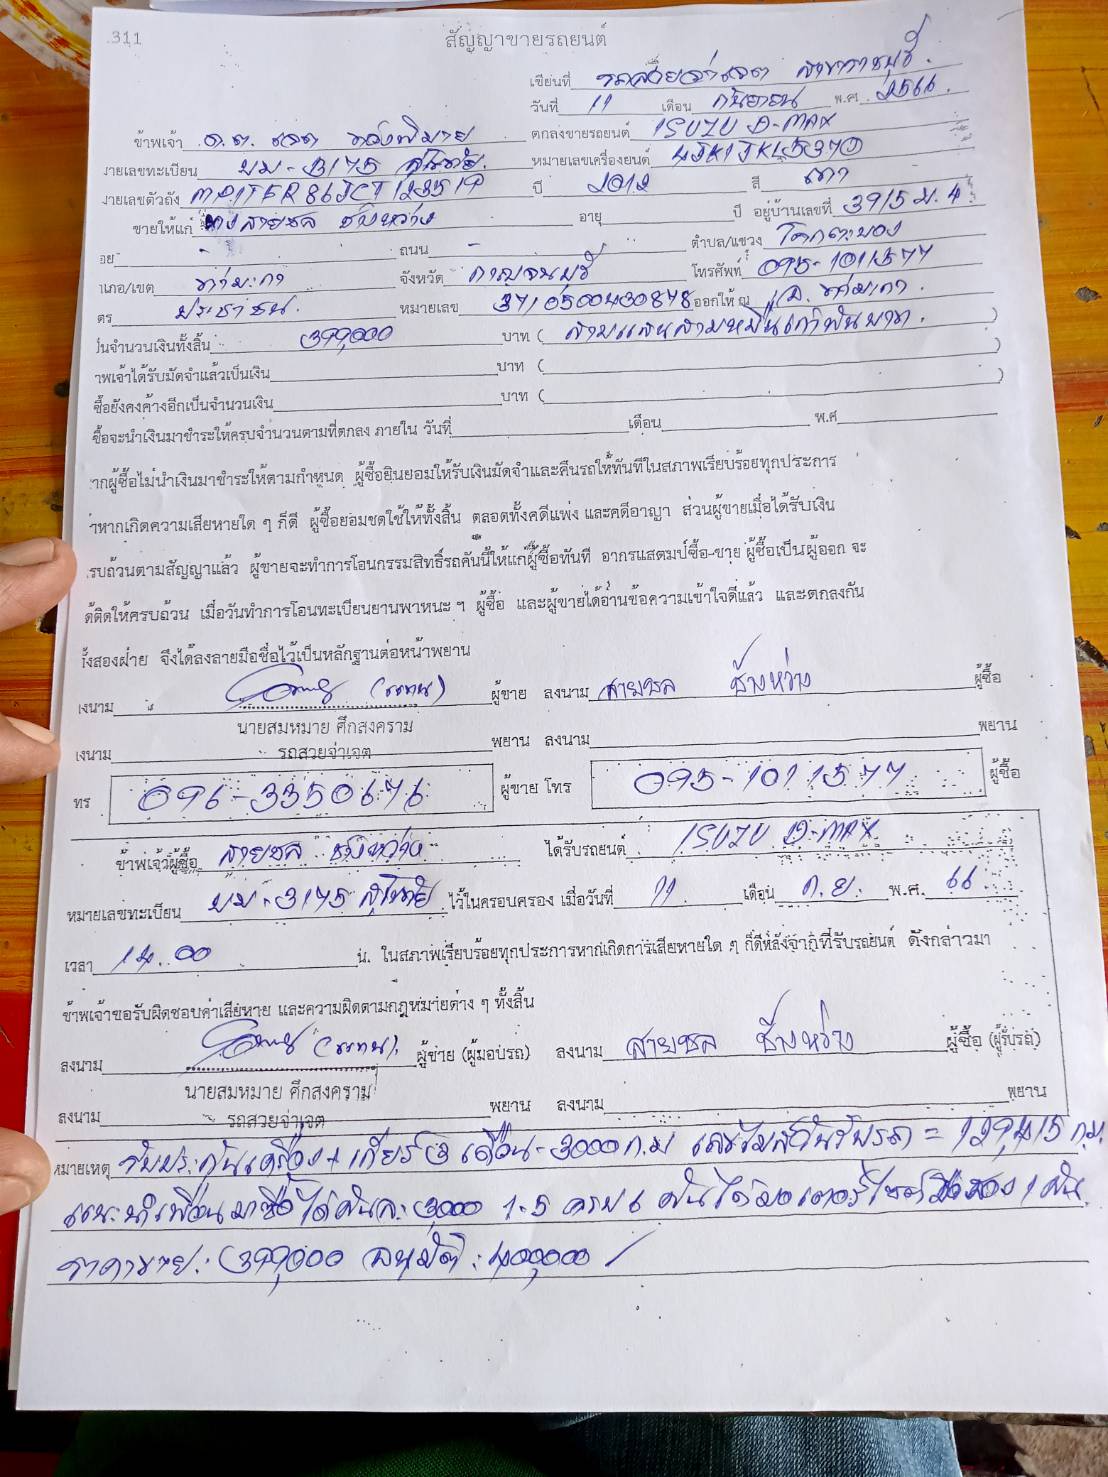 311
สัญญาขายรถยนต์
เขียนที่ รถสวยจ่าเจต สาขาราชบุรี.
วันที่ 11 เดือน กันยายน พ.ศ. 2566.
ข้าพเจ้า ด.ต. เจต ตกลงขายรถยนต์ ISUZU D-MAX
มายเลขทะเบียน บม-3175 สุโขทัย. หมายเลขเครื่องยนต์
มายเลขตัวถัง ปี 2012 สี เทา
ขายให้แก่ นางสายชล ช้างหว่าง อายุ ปี อยู่บ้านเลขที่ 39/5 ม.4
อย - ถนน - ตำบล/แขวง โคกตะบอง
าเภอ/เขต ท่ามะกา จังหวัด กาญจนบุรี โทรศัพท์ 095-1011577
ตร ประชาชน. หมายเลข 3710500430878 ออกให้ ณ อ. ท่ามะกา.
ป็นจำนวนเงินทั้งสิ้น 399,000 บาท (
าพเจ้าได้รับมัดจำแล้วเป็นเงิน บาท ( )
ซื้อยังคงค้างอีกเป็นจำนวนเงิน บาท ( )
ซื้อจะนำเงินมาชำระให้ครบจำนวนตามที่ตกลง ภายใน วันที่ เดือน พ.ศ
ากผู้ซื้อไม่นำเงินมาชำระให้ตามกำหนด ผู้ซื้อยินยอมให้รับเงินมัดจำและคืนรถให้ทันทีในสภาพเรียบร้อยทุกประการ
าหากเกิดความเสียหายใด ๆ ก็ดี ผู้ซื้อยอมชดใช้ให้ทั้งสิ้น ตลอดทั้งคดีแพ่ง และคดีอาญา ส่วนผู้ขายเมื่อได้รับเงิน
รบถ้วนตามสัญญาแล้ว ผู้ขายจะทำการโอนกรรมสิทธิ์รถคันนี้ให้แก่ผู้ซื้อทันที อากรแสตมป์ซื้อ-ขาย ผู้ซื้อเป็นผู้ออก จะ
ด้ติดให้ครบถ้วน เมื่อวันทำการโอนทะเบียนยานพาหนะ ฯ ผู้ซื้อ และผู้ขายได้อ่านข้อความเข้าใจดีแล้ว และตกลงกัน
ั้งสองฝ่าย จึงได้ลงลายมือชื่อไว้เป็นหลักฐานต่อหน้าพยาน
งนาม (แทน) ผู้ขาย ลงนาม สายชล ช้างหว่าง ผู้ซื้อ
นายสมหมาย ศึกสงคราม
งนาม รถสวยจ่าเจต พยาน ลงนาม พยาน
ทร 096-3350676 ผู้ขาย โทร 095-1011577 ผู้ซื้อ
ข้าพเจ้าผู้ซื้อ สายชล ช้างหว่าง ได้รับรถยนต์ ISUZU D-MAX
หมายเลขทะเบียน บม-3175 สุโขทัย ไว้ในครอบครอง เมื่อวันที่ 11 เดือน ก.ย. พ.ศ. 66
เวลา 14.00 น. ในสภาพเรียบร้อยทุกประการหากเกิดการเสียหายใด ๆ ก็ดีหลังจากที่รับรถยนต์ ดังกล่าวมา
ข้าพเจ้าขอรับผิดชอบค่าเสียหาย และความผิดตามกฎหมายต่าง ๆ ทั้งสิ้น
ลงนาม (แทน) ผู้ขาย (ผู้มอบรถ) ลงนาม สายชล ช้างหว่าง ผู้ซื้อ (ผู้รับรถ)
นายสมหมาย ศึกสงคราม
ลงนาม รถสวยจ่าเจต พยาน ลงนาม พยาน
หมายเหตุ รับประกันเครื่อง+เกียร์ 3 เดือน-3000 ก.ม เลขไมล์วันรับรถ = 129,415 กม.
แนะนำเพื่อนมาซื้อได้คันละ 3000 1-5 ครบ 6 คันได้มอเตอร์ไซค์ 1 คัน.
ราคาขาย: 399,000 อนุมัติ: 400,000 /